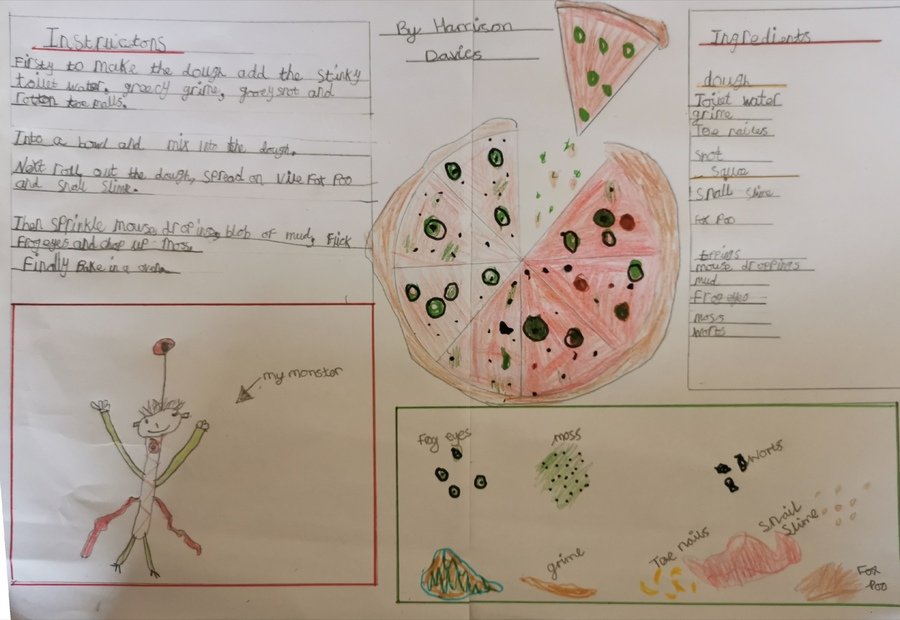 Instructons
Firsty to make the dough add the stinky
toilet water, greecy grime, gooey snot and
rotten toe nails.
Into a bowl and mix into the dough.
Next roll out the dough, spread on vile Fox Poo
and snail slime.
Then sprinkle mouse droping, blob of mud, Flick
Frog eyes and chop up moss.
Finally Bake in a oven.
my monster
By Harrison
Davies
Ingredients
dough
Toilet water
grime
Toe nailes
snot
Sauce
Snail slime
Fox Poo
toppings
mouse droppings
mud
Frog eyes
moss
worts
Frog eyes
moss
worts
grime
Toe nails
Snail
Slime
Fox
Poo